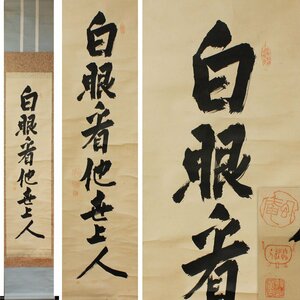 白眼看他世上人
白眼看他世上人
白眼看